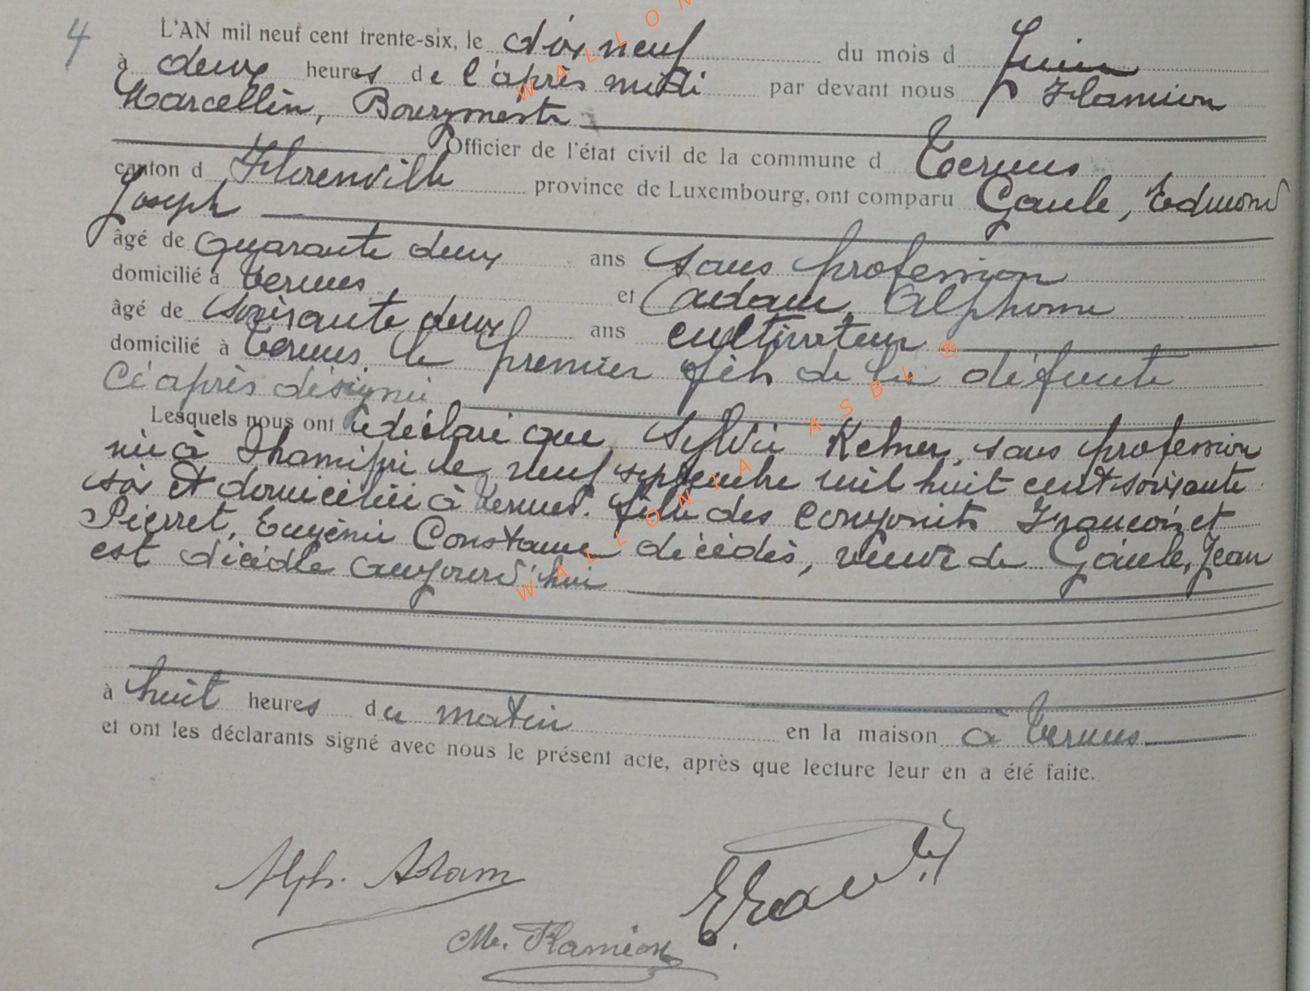 4
L'AN mil neuf cent trente-six, le dix neuf du mois d Juin
à deux heures de l'après midi par devant nous Flamion
Marcellin, Bourgmestre
Officier de l'état civil de la commune d Termes
canton d Florenville province de Luxembourg, ont comparu Gaule, Edmond
Joseph
âgé de quarante deux ans sans profession
domicilié à Termes et Adam, Alphonse
âgé de soixante deux ans cultivateur
domicilié à Termes le premier fils de la défunte
ci après désignée
Lesquels nous ont déclaré que Sylvie Ketner, sans profession
née à le neuf septembre mil huit cent soixante
six et domiciliée à Termes. fille des conjoints François et
Pierret, Eugénie Constance décédés, veuve de Gaule, Jean
est décédée aujourd'hui
à huit heures du matin en la maison à Termes
et ont les déclarants signé avec nous le présent acte, après que lecture leur en a été faite.
Alph. Adam
M. Flamion
WALLONIA ASBL ®
WALLONIA ASBL ®